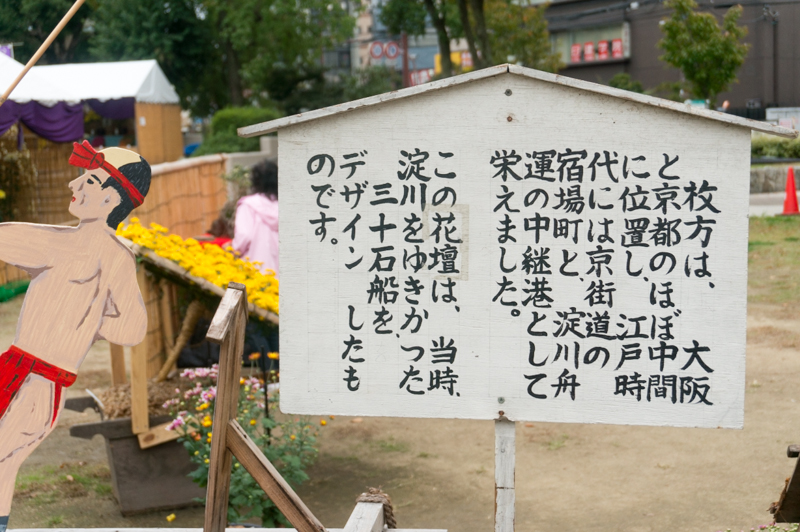 枚方は、大阪
と京都のほぼ中間
に位置し、江戸時
代には京街道の
宿場町と、淀川舟
運の中継港として
栄えました。
この花壇は、当時、
淀川をゆきかった
三十石船を
デザイン したも
のです。